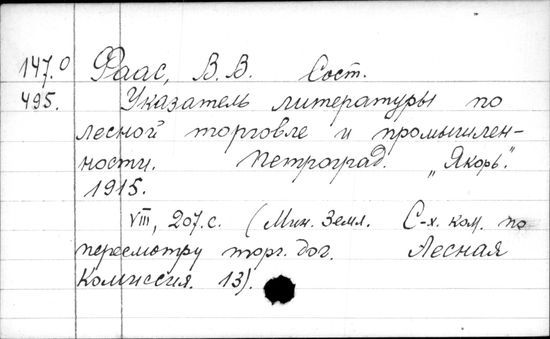 147.0 Фаас, В.В. Сост.
495. Указатель литературы по
лесной торговле и промышлен-
ности. Петроград. „Якорь".
1915.
VIII, 207.с. (Мин. Земл. С-х. ком. по
пересмотру торг. дог. Лесная
Комиссия. 13).